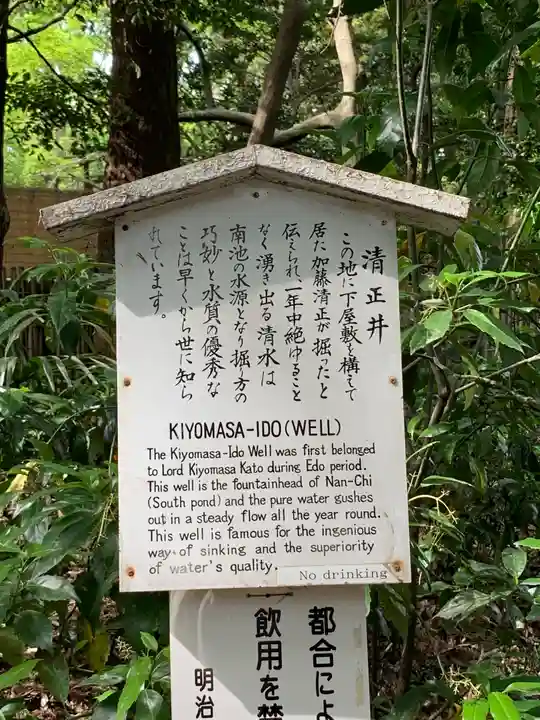 清正井
この地に下屋敷を構えて
居た加藤清正が掘ったと
伝えられ、一年中絶ゆること
なく湧き出る清水は
南池の水源となり掘り方の
巧妙と水質の優秀な
ことは早くから世に知ら
れています。
KIYOMASA-IDO(WELL)
The Kiyomasa-Ido Well was first belonged
to Lord Kiyomasa Kato during Edo period.
This well is the fountainhead of Nan-Chi
(South pond) and the pure water gushes
out in a steady flow all the year round.
This well is famous for the ingenious
way of sinking and the superiority
of water's quality.
No drinking
都合によ
飲用を禁
明治